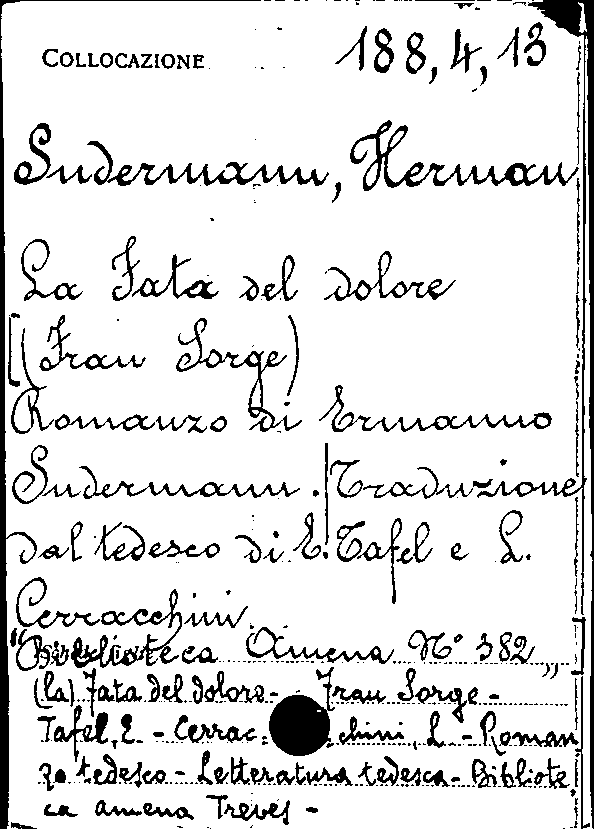 COLLOCAZIONE 188,4,13
Sudermann, Herman
La Fata del dolore
[(Frau Sorge)
Romanzo di Ermanno
Sudermann. | Traduzione
dal tedesco di E. Tafel e L.
Cerracchini.
"Biblioteca Amena N° 382"
(la) Fata del dolore - Frau Sorge -
Tafel, E. - Cerrac= chini, L - Roman
zo tedesco - Letteratura tedesca - Bibliote
ca amena Treves -